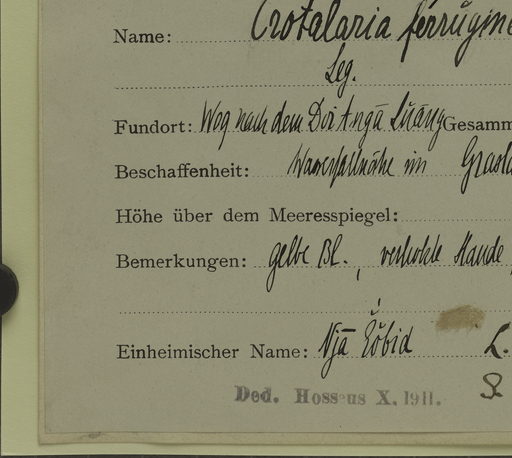 Name: Crotalaria ferrugine
Leg.
Fundort: Weg nach dem Doi Angā Luāng Gesamm
Beschaffenheit: Wasserfallnähe im Grasla
Höhe über dem Meeresspiegel:
Bemerkungen: gelbe Bl., verholzte Staude,
Einheimischer Name: Njā L.
Ded. Hosseus X. 1911.